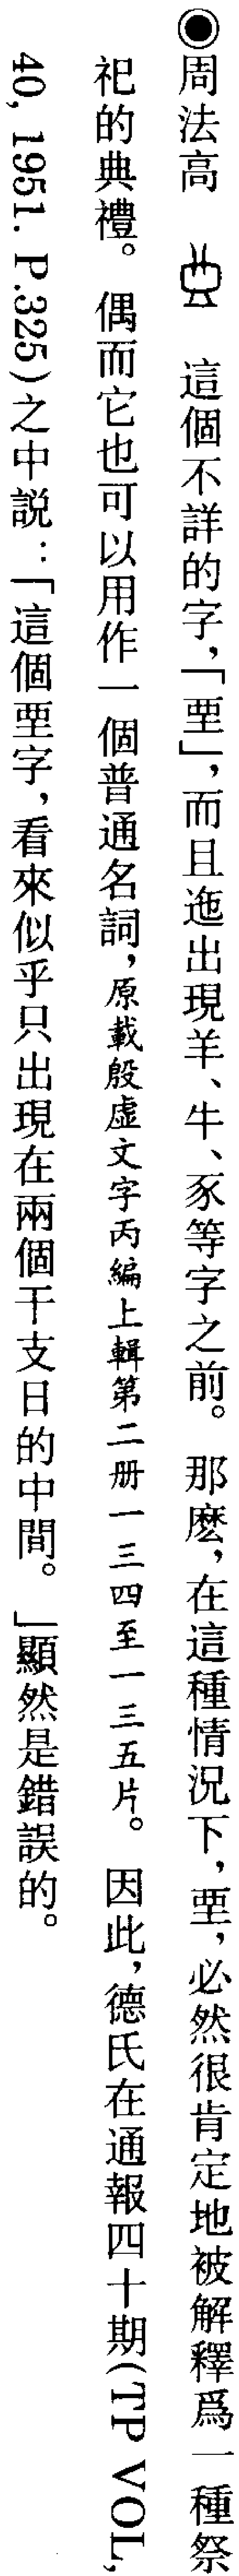 ◉周法高　　這個不詳的字，「䙴」，而且迤出現羊、牛、豕等字之前。　那麼，在這種情況下，䙴，必然很肯定地被解釋爲一種祭
祀的典禮。　偶而它也可以用作一個普通名詞，原載殷虛文字丙編上輯第二册一三四至一三五片。　因此，德氏在通報四十期(TP VOL,
40, 1951. P.325)之中説：「這個䙴字，看來似乎只出現在兩個干支日的中間。　」顯然是錯誤的。